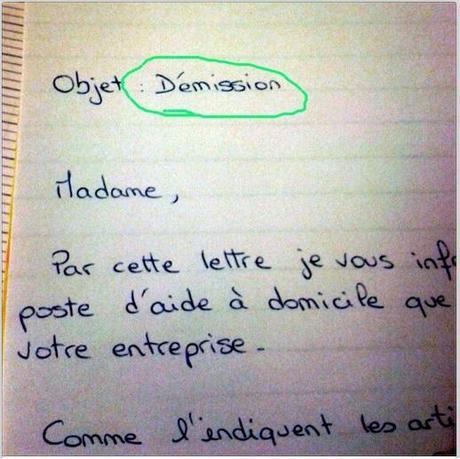 Objet : Démission
Madame,
Par cette lettre je vous
poste d'aide à domicile que
votre entreprise.
Comme l'indiquent les